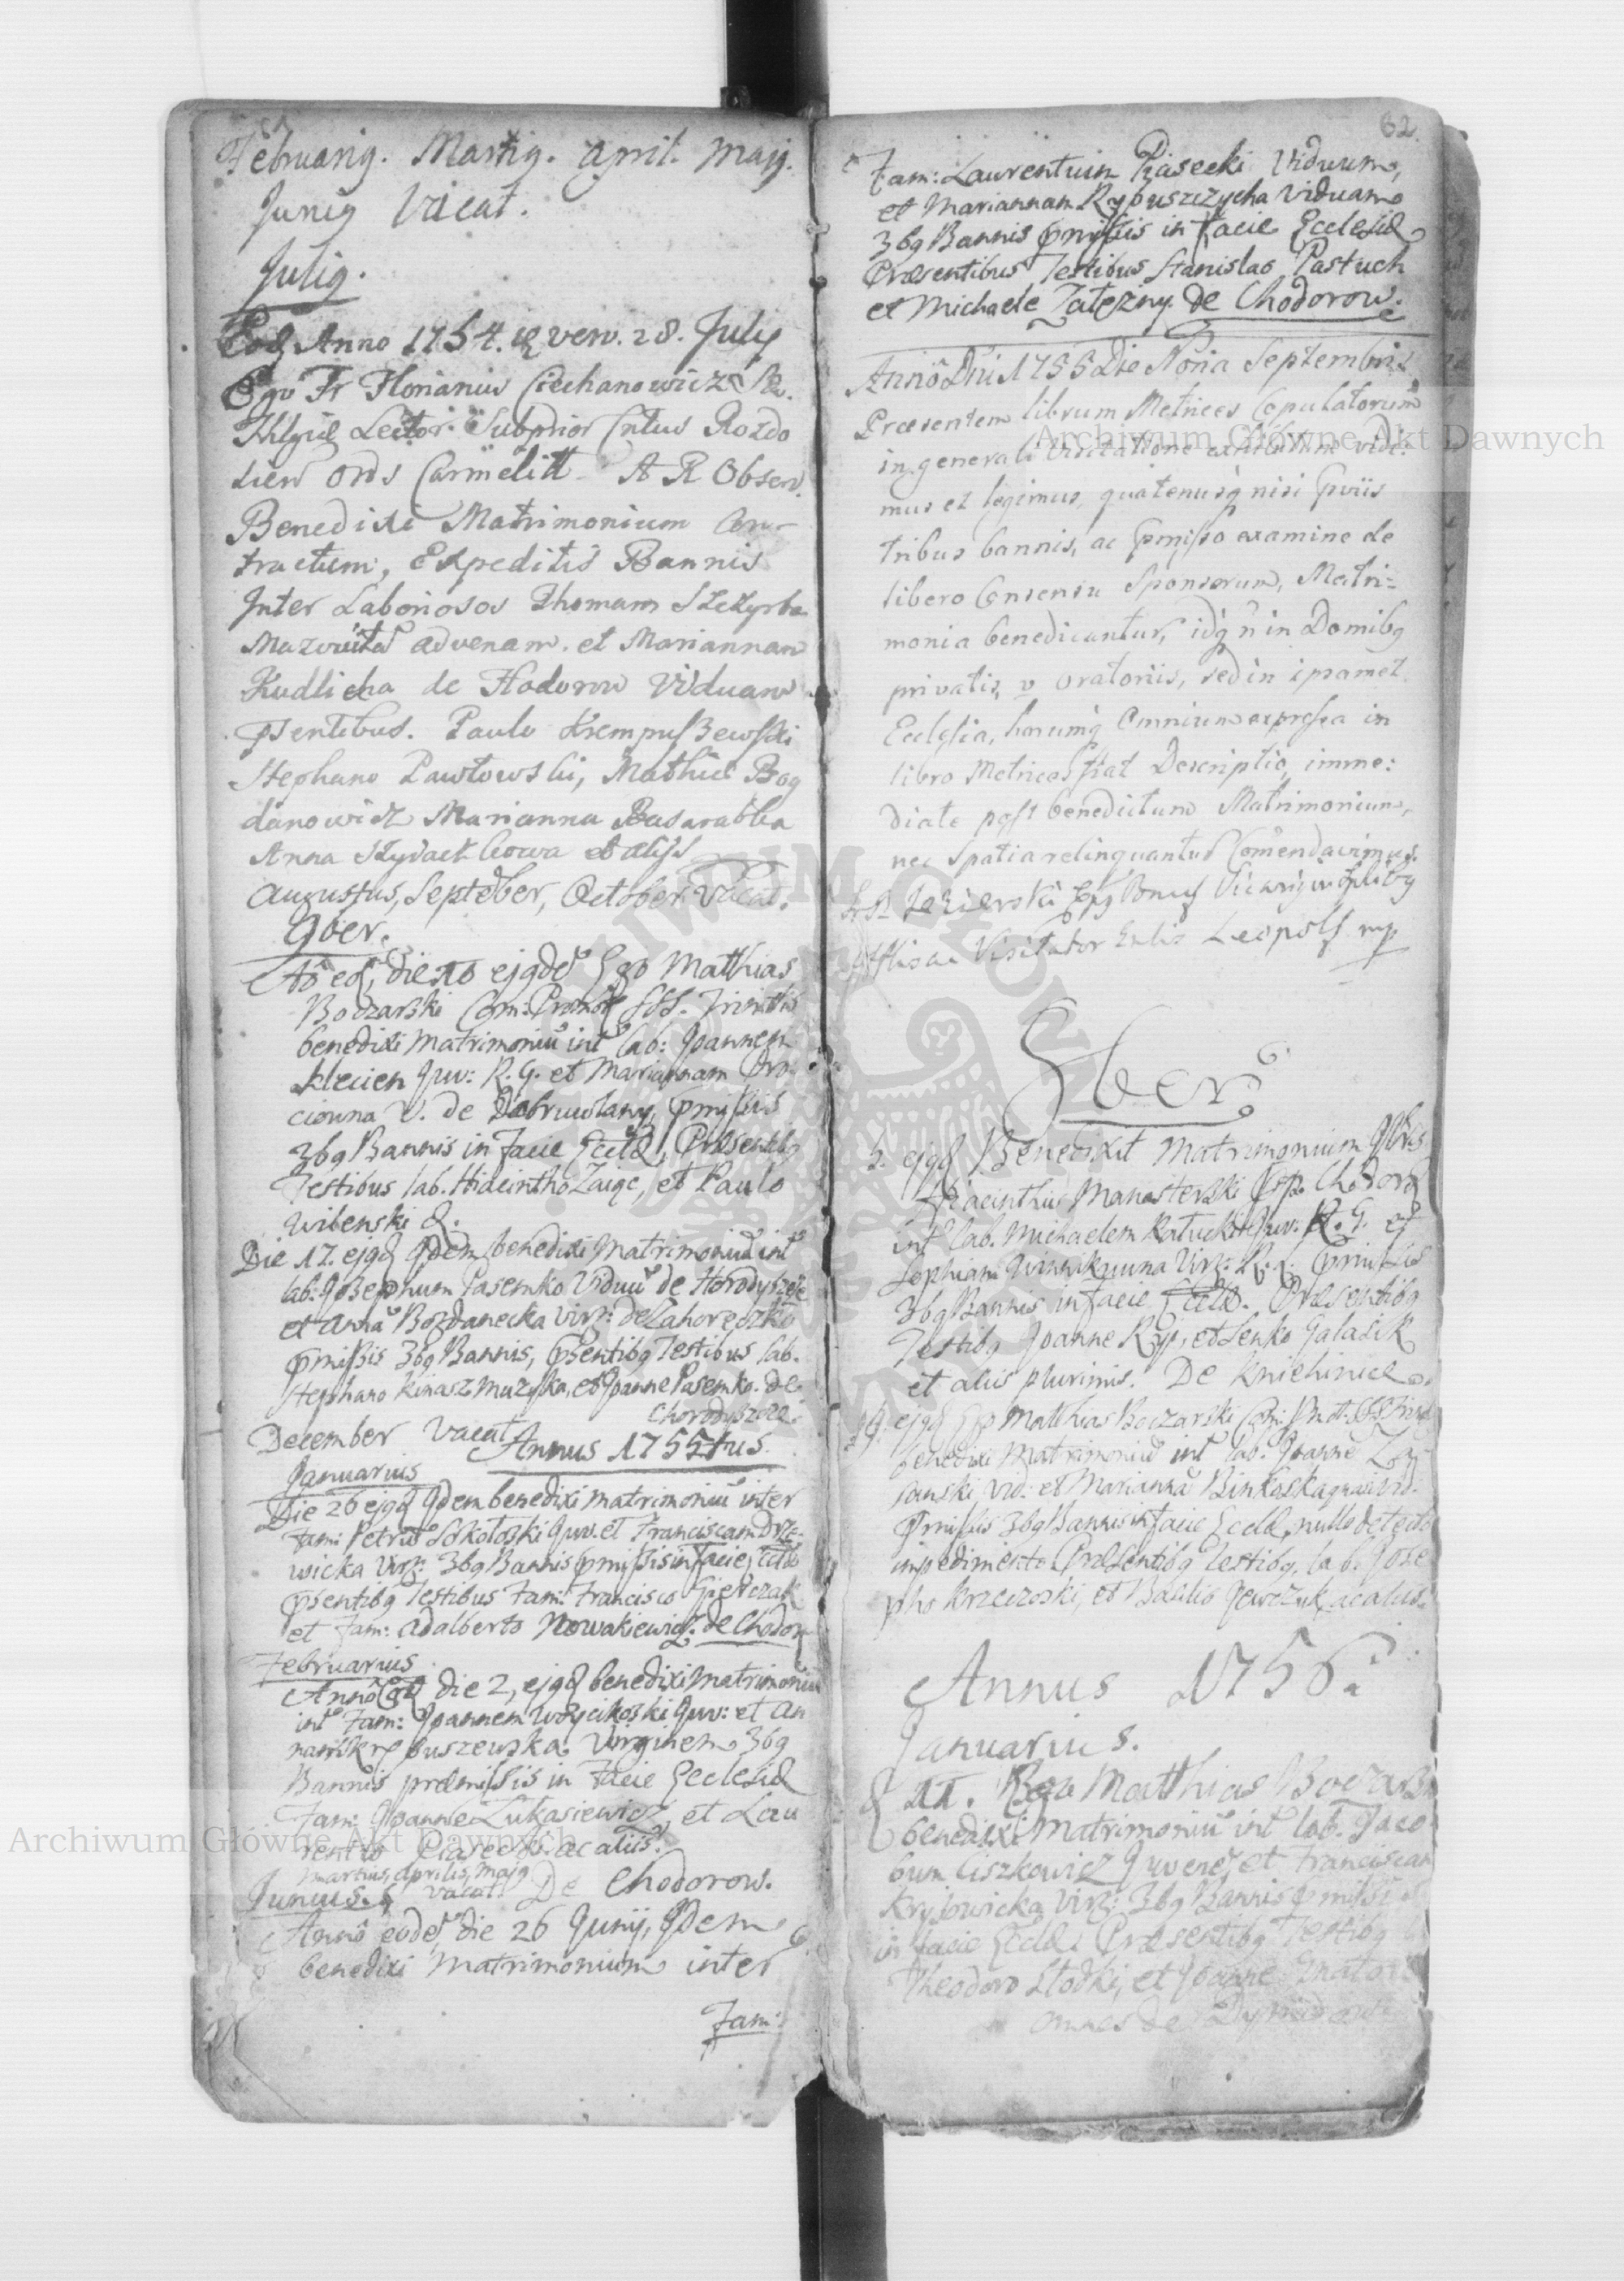 Februarig. Martig. April. Majg.
Junig Vacat.
Julig.
Eod Anno 1754. vero. 28. July
Ego Fr Florianus Ciechanowicz
Lector Subprior Cntus Rozdo
lien Ords Carmelitt A R Observ.
Benedixi Matrimonium Con-
tractum, Expeditis Bannis
Inter Laboriosos Thomam
advenam. et Mariannam
Kudlicka de Hodorow Viduam
psentibus. Paulo Krempuszewski
Stephano Pawłowski, Mathia Bog
danowicz Marianna Basarabka
Anna et alijs
Augustus, Septēber, October Vacat.
9ber.
Aō eod, die 10 ejgdē Ego Matthias
Boczarski Com: SSS. Trinittis
benedixi matrimoniū intr lab: Joannem
Klecien Juv: R. G. et Mariannam Pro
ciowna V. de pmissis
3bg Bannis in Facie Eccłæ, Præsentibg
Testibus lab. Hiacintho Zaiąc, et Paulo
Wilenski &.
Die 17. ejgd Idem benedixi matrimoniū intr
lab: Josephum Pasemko Viduū de Horodyszcze
et Annā Bogdanecka virg: de Zahoreczko
pmissis 3bg Bannis, psentibg Testibus lab.
Stephano Kiniasz Muzyka, et Joanne Pasemko. de
Chorodyszcze.
December Vacat
Annus 1755tus.
Januarius
Die 26 ejgd Idem benedixi matrimoniū inter
Fam: Petrū Sokołoski Juv. et Franciscam Drze-
wicka Virg: 3bg Bannis pmissis in facie Eccłæ
psentibg Testibus Fam: Francisco
et Fam: Adalberto Nowakiewicz. de Chodor
Februarius
Anno eod die 2, ejgd benedixi matrimoniū
intr Fam: Joannem Woycikoski Juv: et An
nam Skrzybuszewska Virginem 3bg
Bannis præmissis in Facie Ecclesiæ
Fam: Joanne Łukasiewicz, et Lau
rentio Piasecki ac alijs.
Martius, Aprilis, Majg vacat De Chodorow.
Junius.
Anno eodē, die 26 Junij, Idem
benedixi Matrimonium inter
Fam:
82.
Fam: Laurentium Piasecki Viduum,
et Mariannam Rybuszczycha Viduam
3bg Bannis pmissis in Facie Ecclesiæ
Præsentibus Testibus Stanislao Pastuch
et Michaele Załezny. de Chodorow.
Anno Dni 1755 Die Nona Septembris
Præsentem librum Metrices Copulatorum
in generali Visitatione exhibitum vidi-
mus et legimus, quatenusq nisi pviis
tribus bannis, ac pmisso examine de
libero Consensu Sponsorum, Matri-
monia benedicantur, idq n in Domibg
privatis, v oratoriis, sed in ipsamet
Ecclesia, horumq omnium expressa in
libro Metrices fiat Descriptio, imme:
diate post benedictum Matrimonium,
nec Spatia relinquantur Comendavimus.
Jezierski
Visitator Leopols mp
9ber
ejgd Benedixit Matrimonium
Hiacinthus Manasterski Chodor
intr lab. Michaelem Juv. R. G. et
Sophiam Winnikowna Virg: R. G. pmissis
3bg Bannis in facie Eccłæ. Præsentibg
Testibg Joanne Ryś, et Senko Galasik
et aliis plurimis. De Kniehinicze.
ejgd Ego Matthias Boczarski Com: SSS Trinit
benedixi Matrimoniū intr lab. Joannē
sanski Vid: et Mariannā
pmissis 3bg Bannis in facie Eccłæ, nullo detecto
impedimento Præsentibg Testibg, lab. Jose
pho Krzeczoski, et Basilio ac alus.
Annus 1756.
Januarius.
11. Ego Matthias Boczarski
benedixi Matrimoniū intr lab. Jaco
bum Ciszkowicz Juvenē, et Franciscam
Krysowicka Virg: 3bg Bannis pmissis
in facie Eccłæ. Præsentibg Testibg
Theodoro Słodki, et Joanne
omnes de
Archiwum Główne Akt Dawnych
Archiwum Główne Akt Dawnych